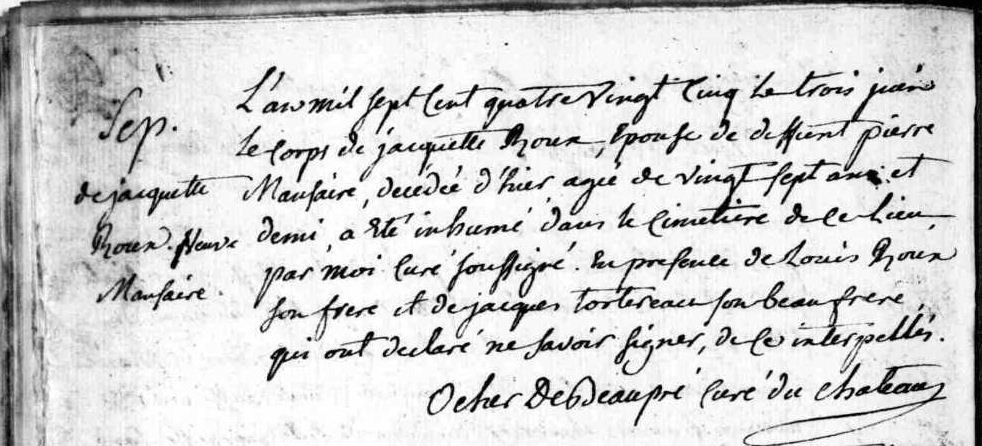 Sep.
de jacquette
Roux. Veuve
Mansaire.
L'an mil sept Cent quatre Vingt Cinq Le trois juin
Le Corps de jacquette Roux, Epouse de deffunt pierre
Mansaire, decédée d'hier, agée de vingt sept ans et
demi, a eté inhumé dans le Cimetière de Ce Lieu
par moi Curé soussigné. En presence de Louis Roux
son frere et de jacques tortereau son beau frere,
qui ont declaré ne savoir signer, de Ce interpellés.
Debeaupré Curé du chateau